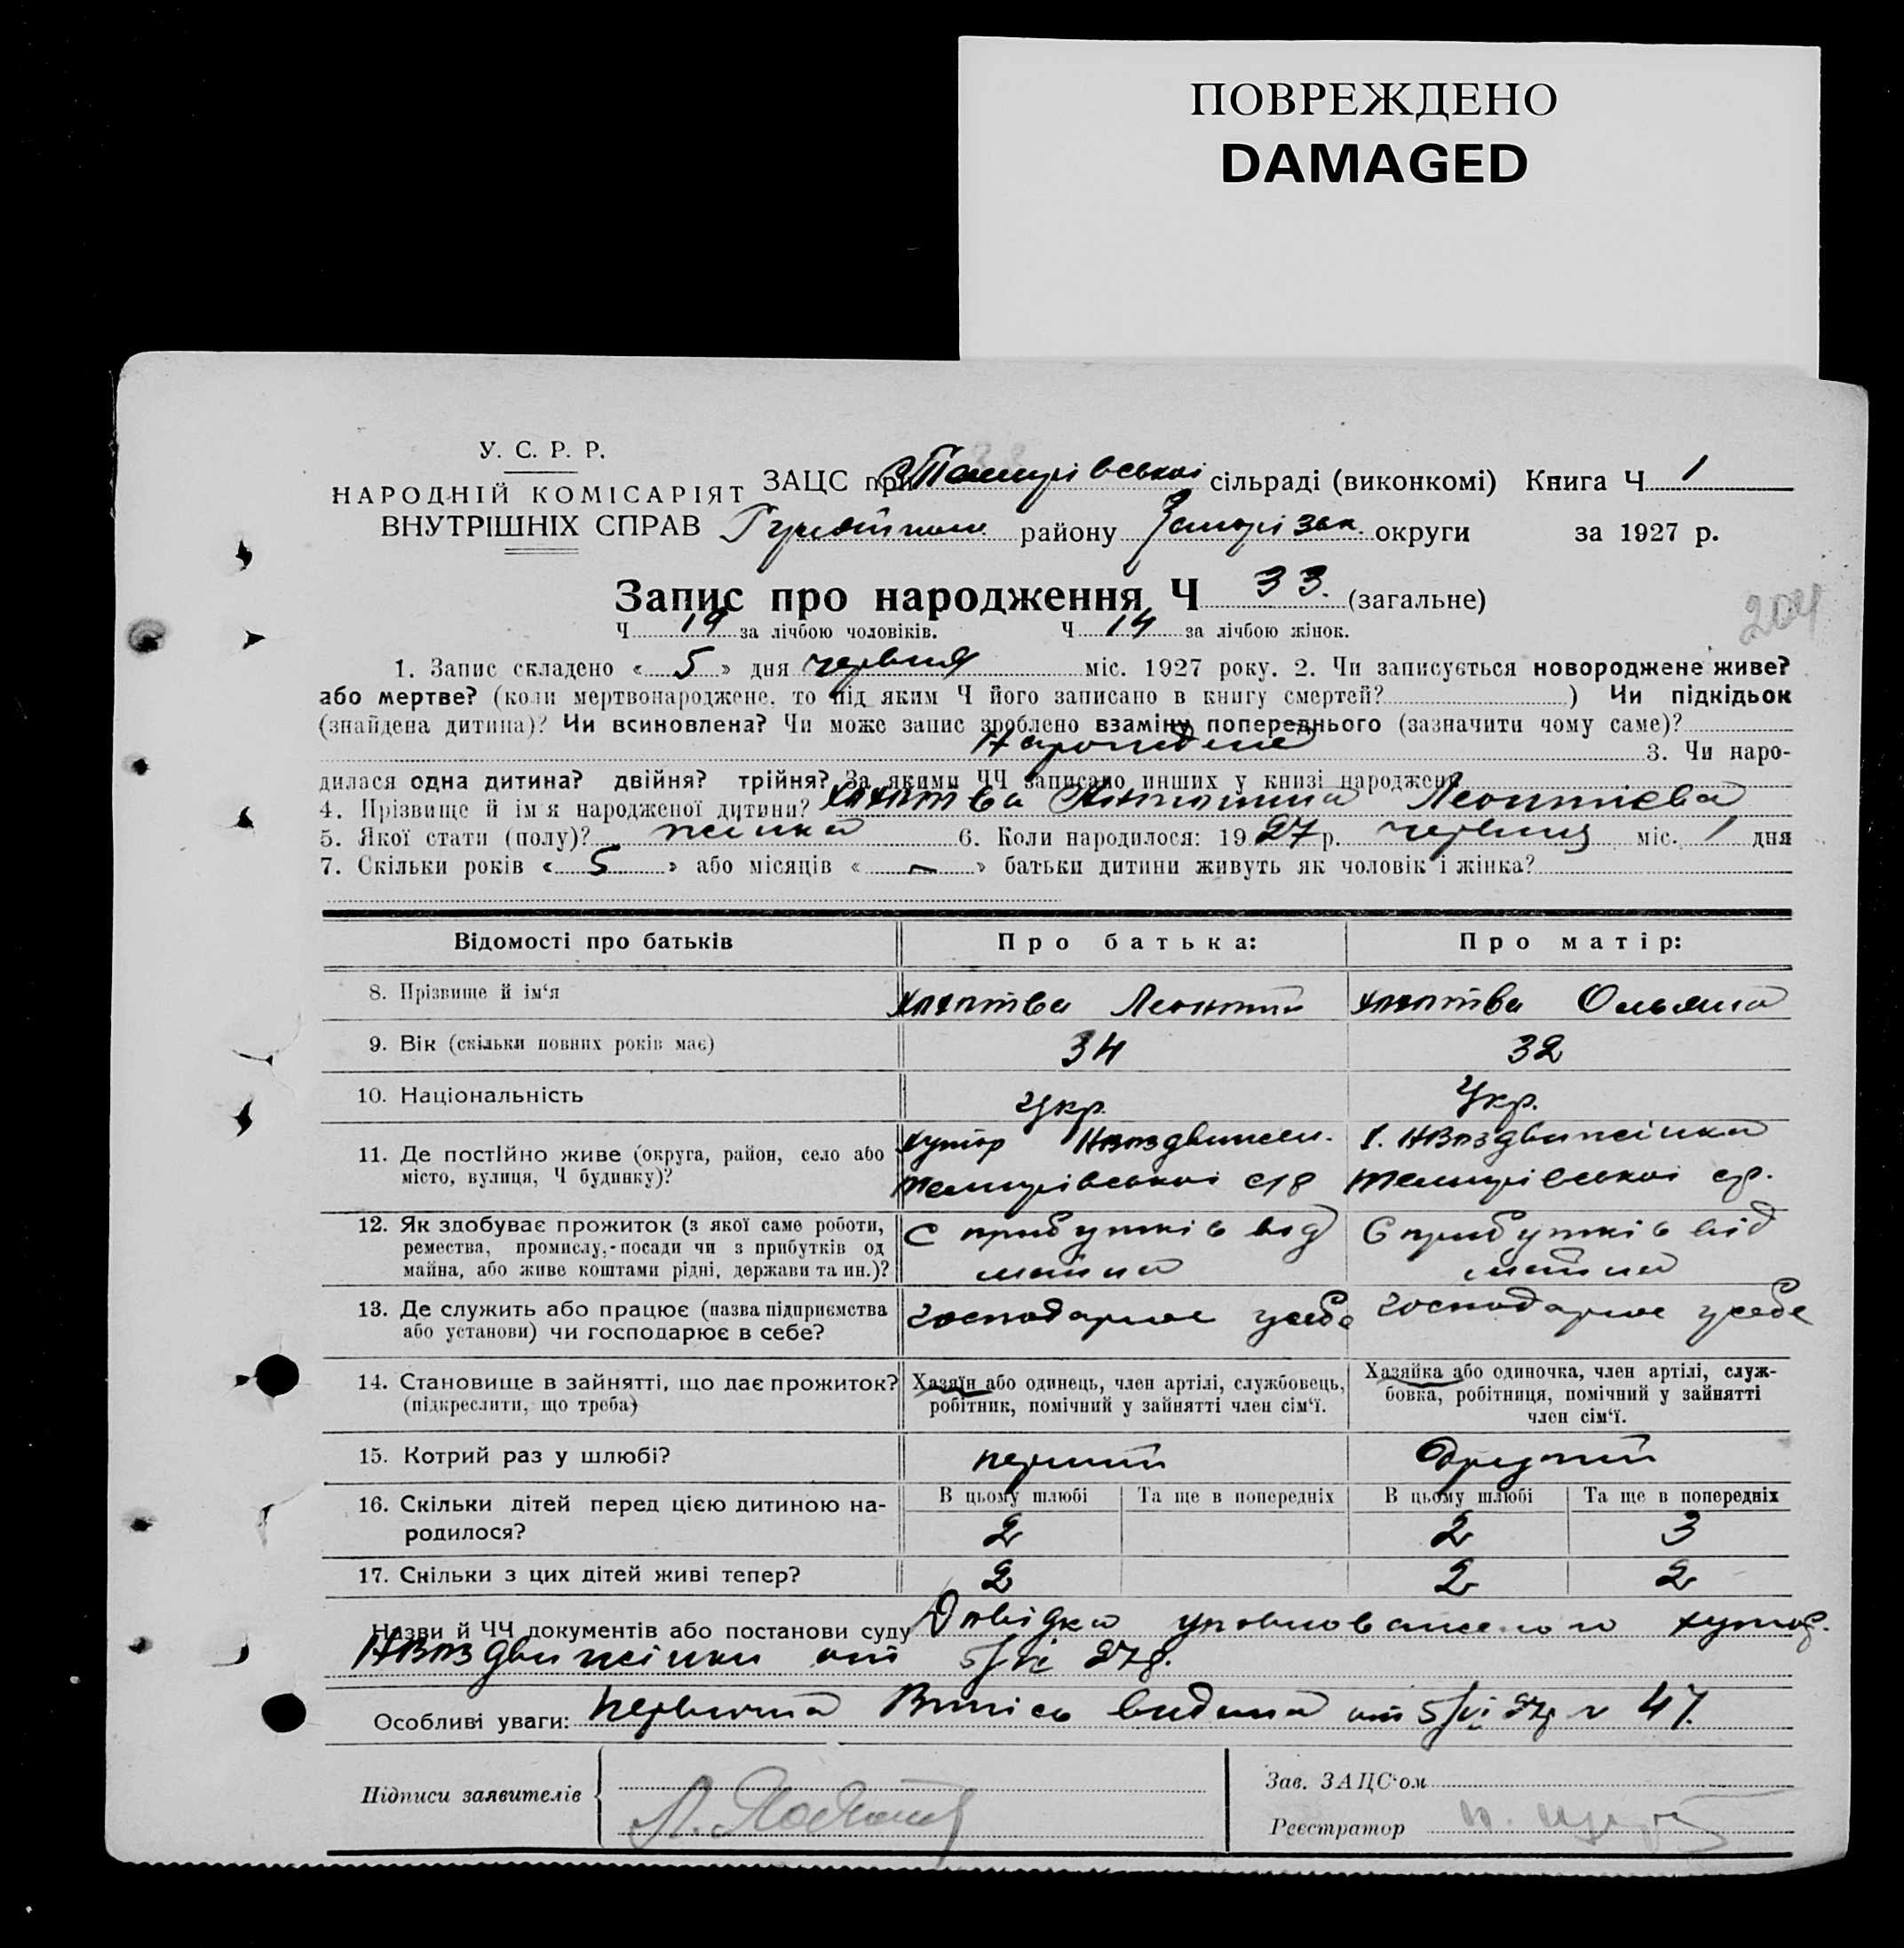 ПОВРЕЖДЕНО
DAMAGED
У. С. Р. Р.
НАРОДНІЙ КОМІСАРІЯТ
ВНУТРІШНІХ СПРАВ
ЗАЦС при Темирівській сільраді (виконкомі) Книга Ч 1
району Запоріз округи за 1927 р.
Запис про народження Ч 33. (загальне)
Ч 19 за лічбою чоловіків. Ч 14 за лічбою жінок.
204
1. Запис складено « 5 » дня червня міс. 1927 року. 2. Чи записується новороджене живе?
або мертве? (коли мертвонароджене, то під яким Ч його записано в книгу смертей? ) Чи підкідьок
(знайдена дитина)? Чи всиновлена? Чи може запис зроблено взаміну попереднього (зазначити чому саме)?
3. Чи наро-
дилася одна дитина? двійня? трійня? За якими ЧЧ записано инших у книзі народжень
4. Прізвище й ім'я народженої дитини? Леонтієва
5. Якої стати (полу)? жіноча 6. Коли народилося: 1927 р. червня міс. 1 дня
7. Скільки років « 5 » або місяців « — » батьки дитини живуть як чоловік і жінка?
Відомості про батьків Про батька: Про матір:
8. Прізвище й ім'я Леонтій
9. Вік (скільки повних років має) 34 32
10. Національність Укр. Укр.
11. Де постійно живе (округа, район, село або хутір Нвоздвижен. х. Нвоздвижінка
місто, вулиця, Ч будинку)? Темирівської с/р Темирівської ср.
12. Як здобуває прожиток (з якої саме роботи, С прибутків від С прибутків від
ремества, промислу, посади чи з прибутків од майна майна
майна, або живе коштами рідні, держави та ин.)?
13. Де служить або працює (назва підприємства господарює у себе господарює у себе
або установи) чи господарює в себе?
14. Становище в зайнятті, що дає прожиток? Хазяїн або одинець, член артілі, службовець, Хазяйка або одиночка, член артілі, служ-
(підкреслити, що треба) робітник, помічний у зайнятті член сім'ї. бовка, робітниця, помічний у зайнятті
член сім'ї.
15. Котрий раз у шлюбі? перший другий
16. Скільки дітей перед цією дитиною на- В цьому шлюбі Та ще в попередніх В цьому шлюбі Та ще в попередніх
родилося? 2 2 3
17. Скільки з цих дітей живі тепер? 2 2 2
Назви й ЧЧ документів або постанови суду Довідка уповноваженого хутор.
Нвоздвижінки від 5/VI 27р.
Особливі уваги: Первична Випісь видана від 5/VI 27р № 47.
Підписи заявителів
Зав. ЗАЦС'ом
Реєстратор